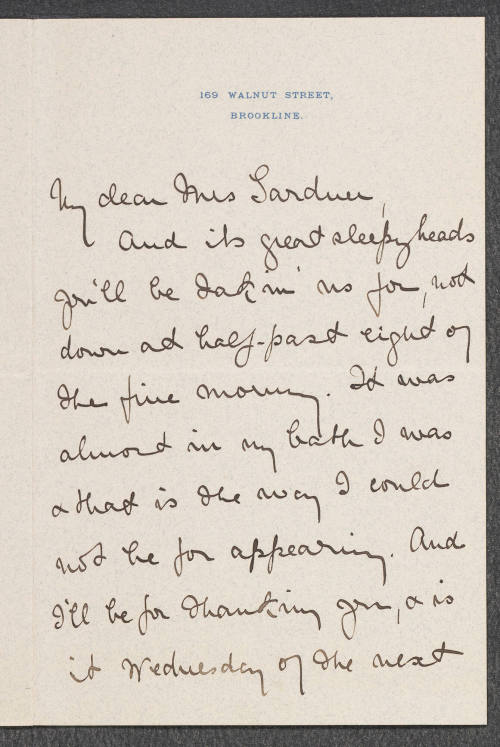 169 WALNUT STREET,
BROOKLINE.
My dear Mrs Gardner,
And its great sleepyheads
you'll be takin' us for, not
down at half-past eight of
the fine mornin'. It was
almost in my bath I was
& that is the way I could
not be for appearing. And
I'll be for thanking you, & is
it Wednesday of the next